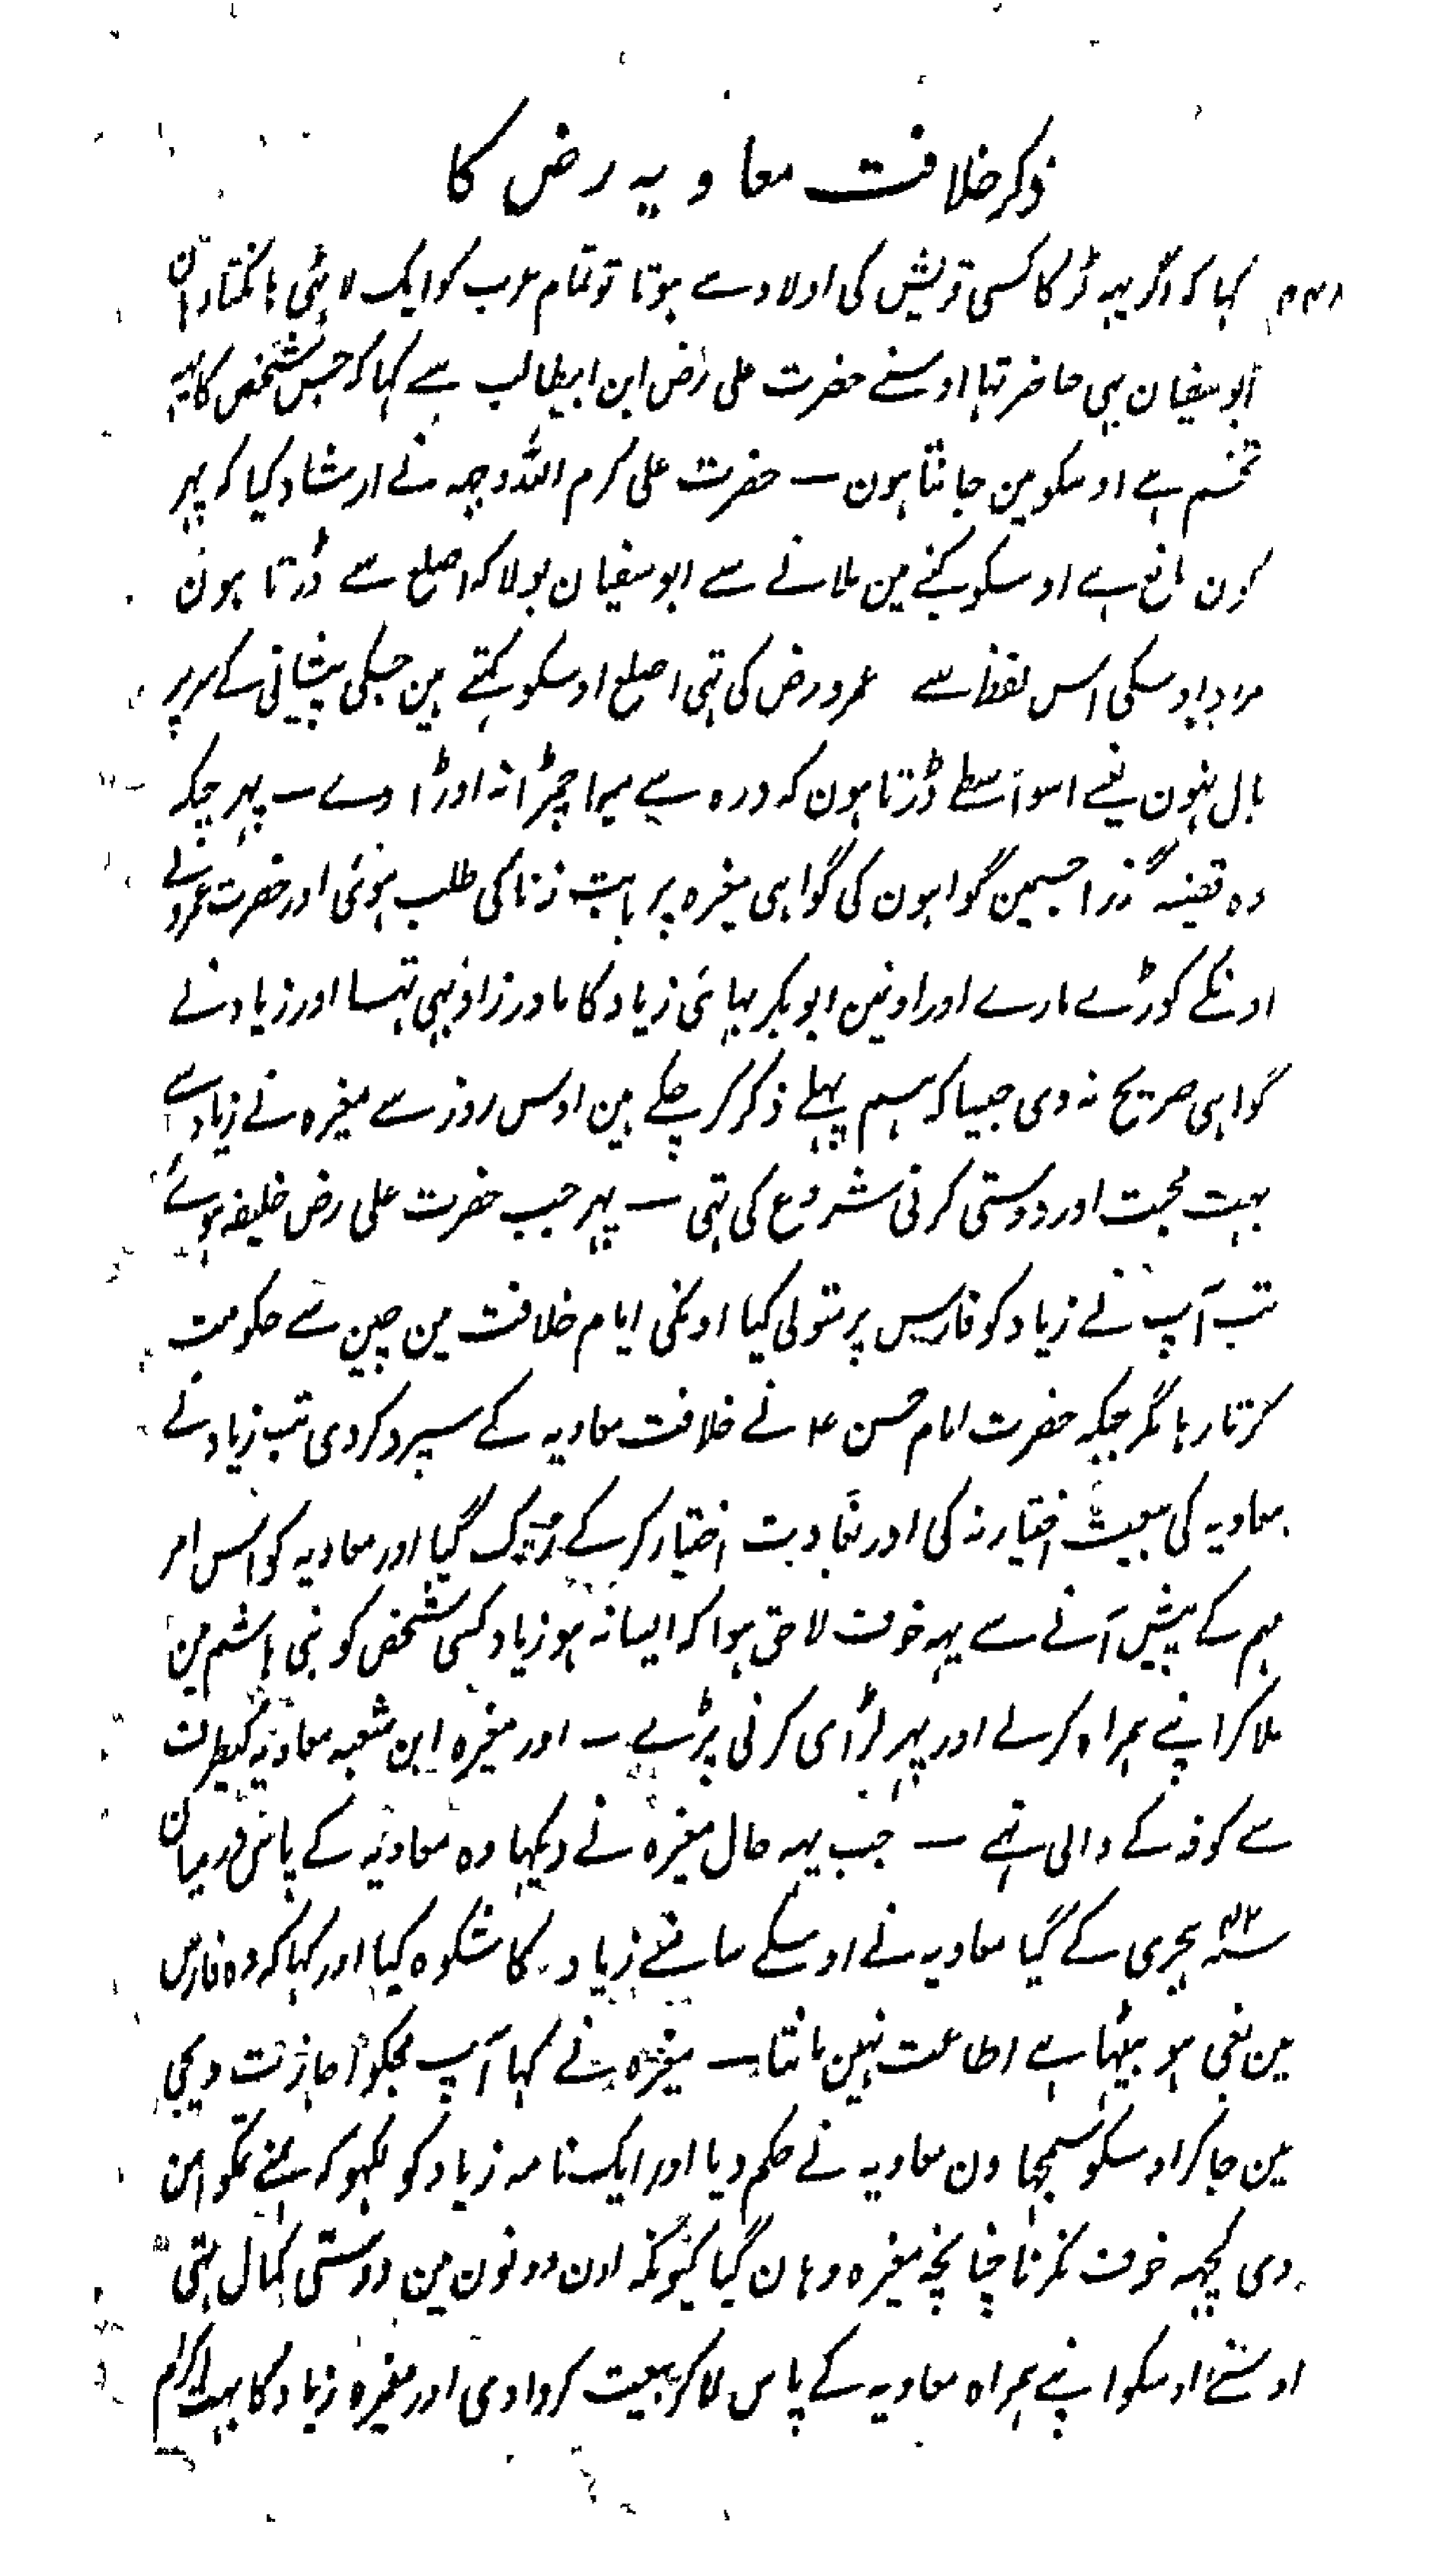 ذکر خلافت معاویہ رض کا
کہا کہ اگر یہہ لڑکا کسی قریش کی اولاد سے ہوتا تو تمام عرب کو ایک لاٹہی ہانکتا اون
ابوسفیان بہی حاضر تہا اوسنے حضرت علی رض ابن ابیطالب سے کہا کہ جس شخص کا یہہ
تخم ہے اوسکو مین جانتا ہون — حضرت علی کرم اللہ وجہہ نے ارشاد کیا کہ پہر
کون مانع ہے اوسکو کنبے مین ملانے سے ابوسفیان بولا کہ اصلع سے ڈرتا ہون
مراد اوسکی اس لفظ سے عمرو رض کی تہی اصلع اوسکو کہتے ہین جسکی پیشانی کے سر پر
بال نہون یعنے اسواسطے ڈرتا ہون کہ درہ سے میرا چمڑا نہ اوڑا دے — پہر جبکہ
وہ قضیہ گذرا جسمین گواہون کی گواہی مغیرہ پر بابت زنا کی طلب ہوئی اور حضرت عمرو نے
اونکے کوڑے مارے اور اونین ابوبکر بہائی زیاد کا مادرزاد بہی تہا اور زیاد نے
گواہی صریح نہ دی جیسا کہ ہم پہلے ذکر کر چکے ہین اوس روز سے مغیرہ نے زیاد سے
بہت محبت اور دوستی کرنی شروع کی تہی — پہر جب حضرت علی رض خلیفہ ہوئے
تب آپ نے زیاد کو فارس پر متولی کیا اونکی ایام خلافت مین چین سے حکومت
کرتا رہا مگر جبکہ حضرت امام حسن ع نے خلافت معاویہ کے سپرد کر دی تب زیاد نے
معاویہ کی بیعت اختیار نہ کی اور بغاوت اختیار کر کے گیا اور معاویہ کو اس امر
مہم کے پیش آنے سے یہہ خوف لاحق ہوا کہ ایسا نہ ہو زیاد کسی شخص کو بنی ہاشم مین
ملا کر اپنے ہمراہ کر لے اور پہر لڑائی کرنی پڑے — اور مغیرہ ابن شعبہ معاویہ کیطرف
سے کوفہ کے والی تہے — جب یہہ حال مغیرہ نے دیکہا وہ معاویہ کے پاس درمیان
سنہ ۴۲ ہجری کے گیا معاویہ نے اوسکے سامنے زیاد کا شکوہ کیا اور کہا کہ وہ فارس
مین بغی ہو بیٹہا ہے اطاعت نہین مانتا — مغیرہ نے کہا آپ مجکو اجازت دیجی
مین جا کر اوسکو سمجہاون معاویہ نے حکم دیا اور ایک نامہ زیاد کو لکہو کہ ہمنے تمکو امن
دی کچہہ خوف نکرنا چنانچہ مغیرہ وہان گیا کیونکہ اون دونون مین دوستی کمال تہی
اوسنے اوسکو اپنے ہمراہ معاویہ کے پاس لا کر بیعت کروا دی اور مغیرہ زیاد کا بہت اکرام